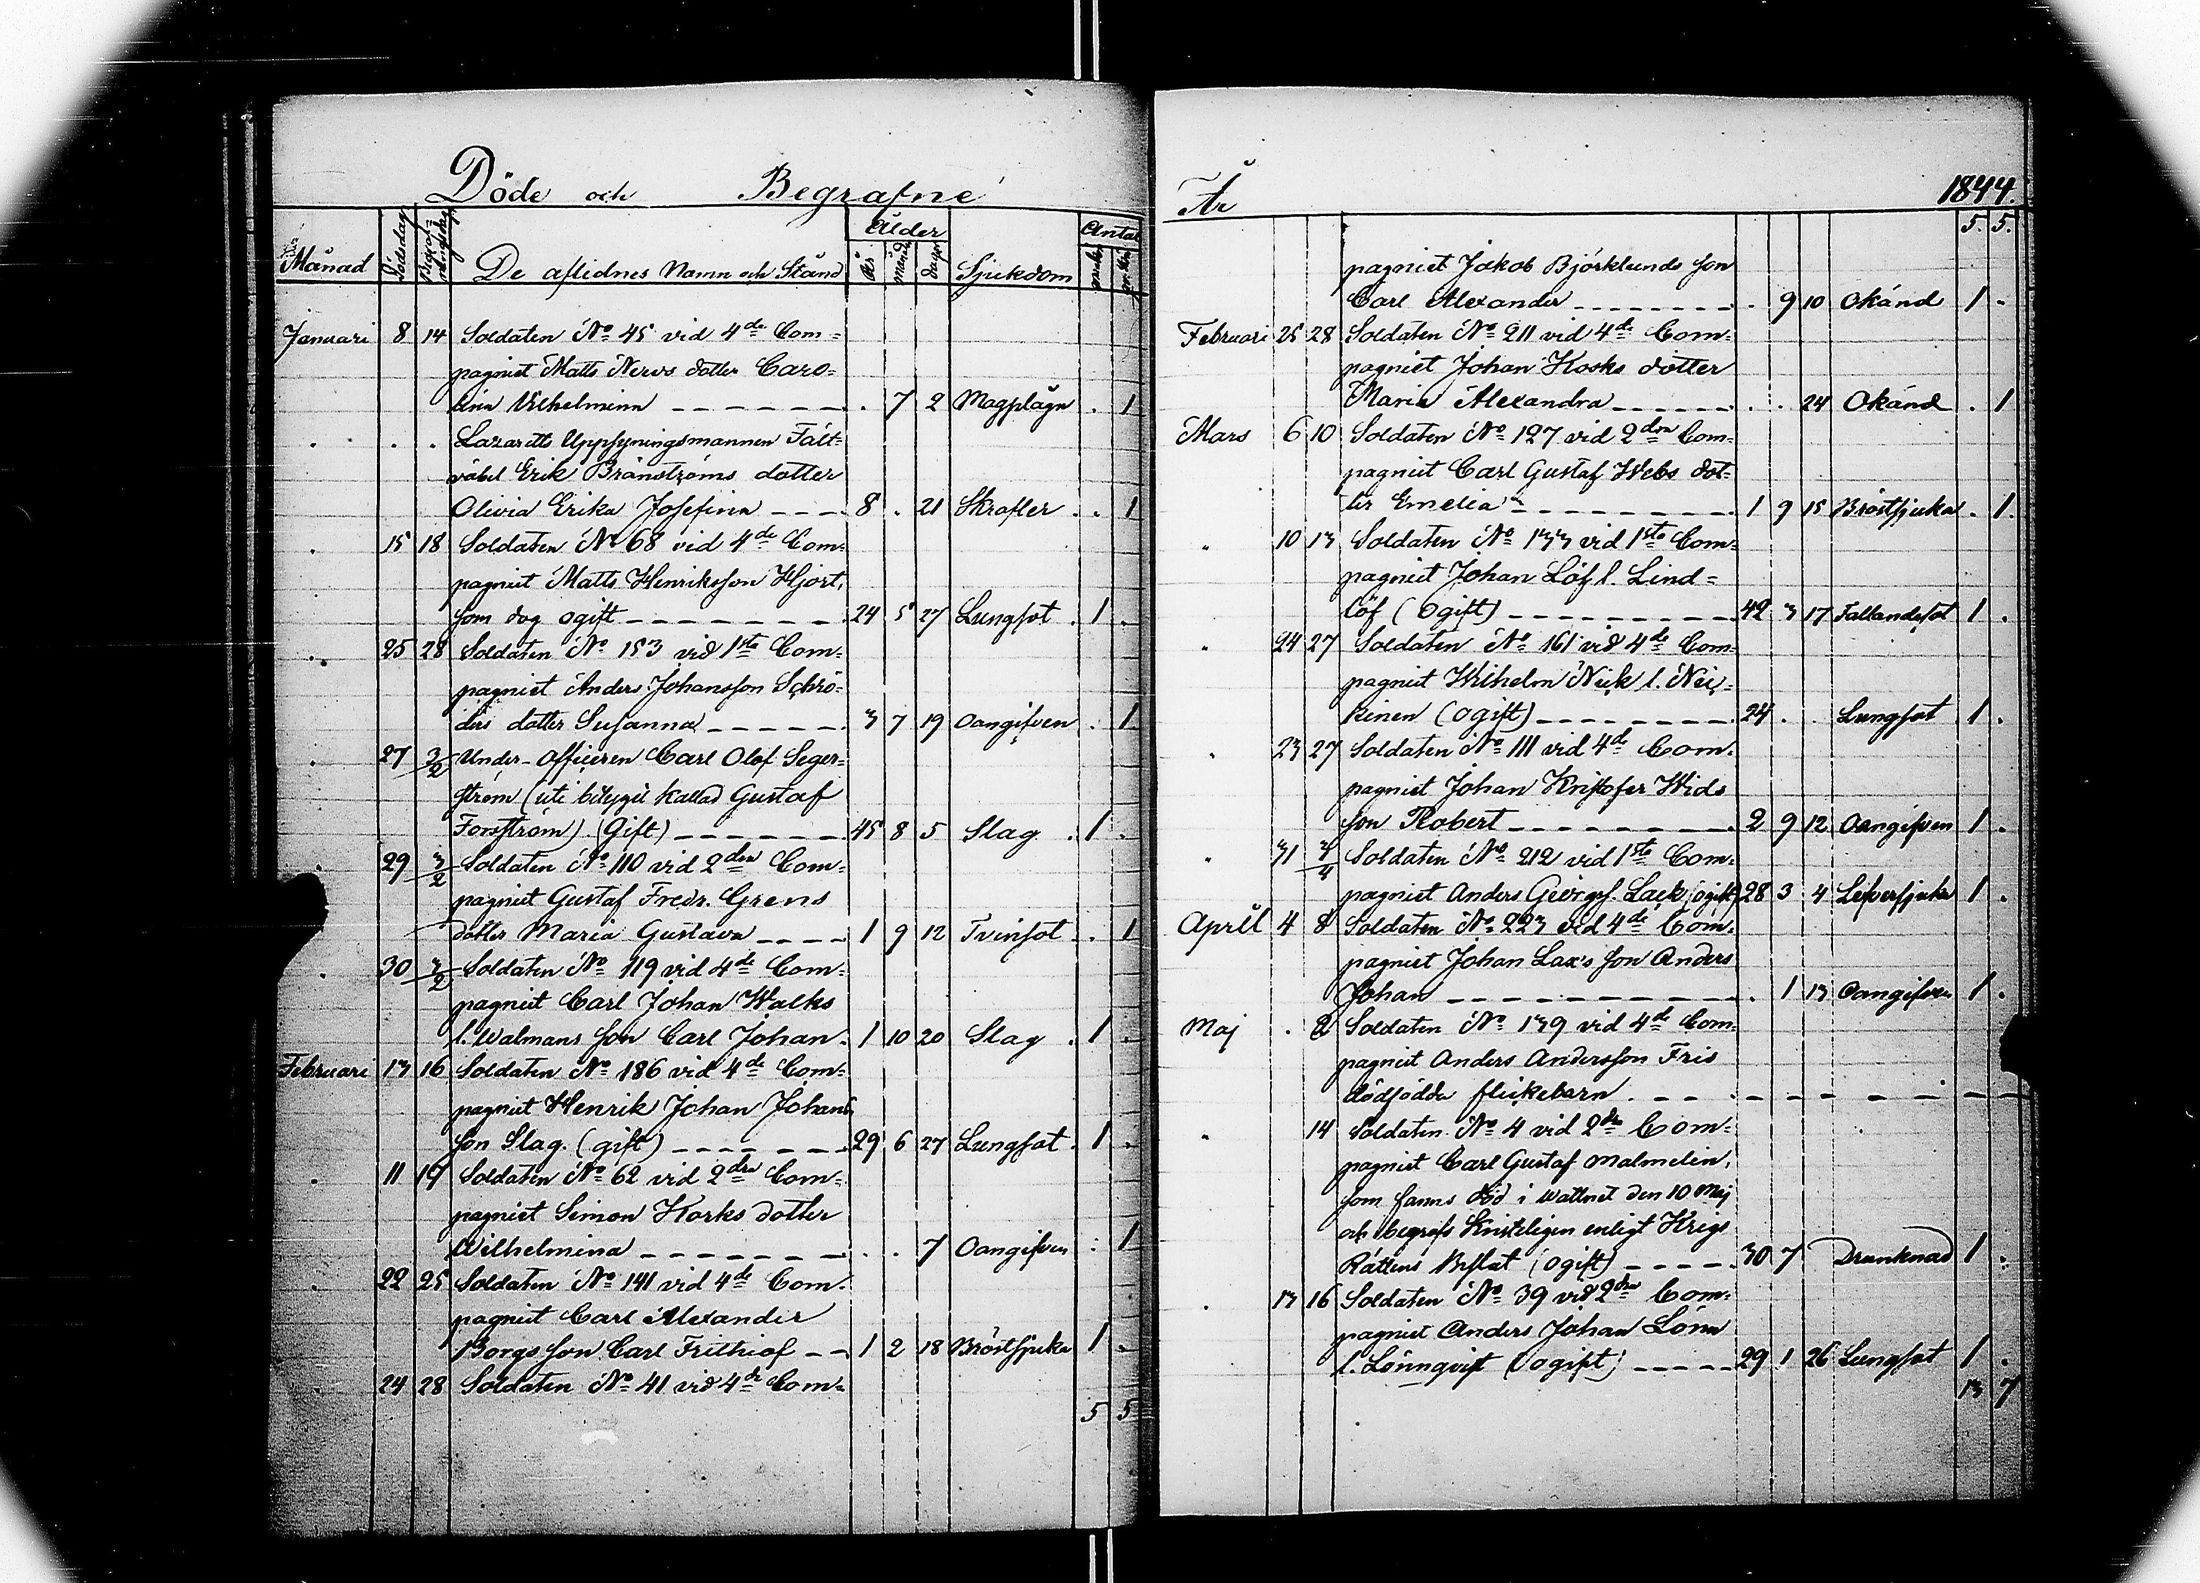 Döde och Begrafne
Månad Dödsdag Begrafningsdag De aflidnes Namn och Stånd Ålder år månad dagar Sjukdom Antal mankön qvinkön
Januari 8 14 Soldaten No 45 vid 4de Com=
pagniet Matts Nervs dotter Caro=
lina Vilhelmina . 7 2 Magplågn . 1
. . . Lazaretts Uppsyningsmannen Fält-
väbel Erik Brånströms dotter
Olivia Erika Josefina 8 . 21 Skrofler . . 1
. 15 18 Soldaten No 68 vid 4de Com=
pagniet Matts Henriksson Hjort,
som dog ogift 24 5 27 Lungsot . 1 .
. 25 28 Soldaten No 153 vid 1sta Com=
pagniet Anders Johansson Schrö=
ders dotter Susanna 3 7 19 Oangifven . 1
. 27 3/2 Under-officeren Carl Olof Seger=
ström (uti betyget kallad Gustaf
Forsström) (Gift) 45 8 5 Slag . 1 .
. 29 3/2 Soldaten No 110 vid 2dra Com=
pagniet Gustaf Fredr. Grens
dotter Maria Gustava 1 9 12 Tvinsot . 1
. 30 3/2 Soldaten No 119 vid 4de Com=
pagniet Carl Johan Walks
l. Walmans son Carl Johan. 1 10 20 Slag . 1 .
Februari 13 16 Soldaten No 186 vid 4de Com=
pagniet Henrik Johan Johans
son Slag. (gift) 29 6 27 Lungsot . 1 .
. 11 19 Soldaten No 62 vid 2dra Com=
pagniet Simon Korks dotter
Wilhelmina . . 7 Oangifven . 1
. 22 25 Soldaten No 141 vid 4de Com=
pagniet Carl Alexander
Borgs son Carl Frithiof 1 2 18 Bröstsjuka 1 .
24 28 Soldaten No 41 vid 4de Com=
5 5
År 1844.
5. 5.
pagniet Jakob Björklunds son
Carl Alexander . 9 10 Okänd 1 .
Februari 25 28 Soldaten No 211 vid 4de Com=
pagniet Johan Kosks dotter
Maria Alexandra . . 24 Okänd . 1
Mars 6 10 Soldaten No 127 vid 2dra Com=
pagniet Carl Gustaf Webs dot-
ter Emelia 1 9 15 Bröstsjuka . 1.
" 10 13 Soldaten No 133 vid 1sta Com=
pagniet Johan Löf l. Lind=
löf (Ogift) 42 3 17 Fallandesot 1 .
" 24 27 Soldaten No 161 vid 4de Com=
pagniet Wilhelm Neik l. Nei=
kinen (Ogift) 24 . Lungsot 1 .
" 23 27 Soldaten No 111 vid 4de Com=
pagniet Johan Kristofer Wids
son Robert 2 9 12 Oangifven 1 .
" 31 7/4 Soldaten No 212 vid 1sta Com=
pagniet Anders Georgs. Lack (ogift) 28 3 4 Lefversjuka 1 .
April 4 8 Soldaten No 223 vid 4de Com=
pagniet Johan Lax's son Anders
Johan . 1 13 Oangifven 1 .
Maj . 2 Soldaten No 139 vid 4de Com=
pagniet Anders Andersson Fris
dödfödda flickebarn.
" 14 Soldaten No 4 vid 2dra Com=
pagniet Carl Gustaf Malmelin,
som fanns död i wattnet den 10 Maj
och begrofs Kristeligen enligt Krigs
Rättens Beslut (ogift) 30 7 Drunknad 1 .
. 13 16 Soldaten No 39 vid 2dra Com=
pagniet Anders Johan Lönn
l. Lönnqvist (ogift) 29 1 26 Lungsot 1 .
13 7